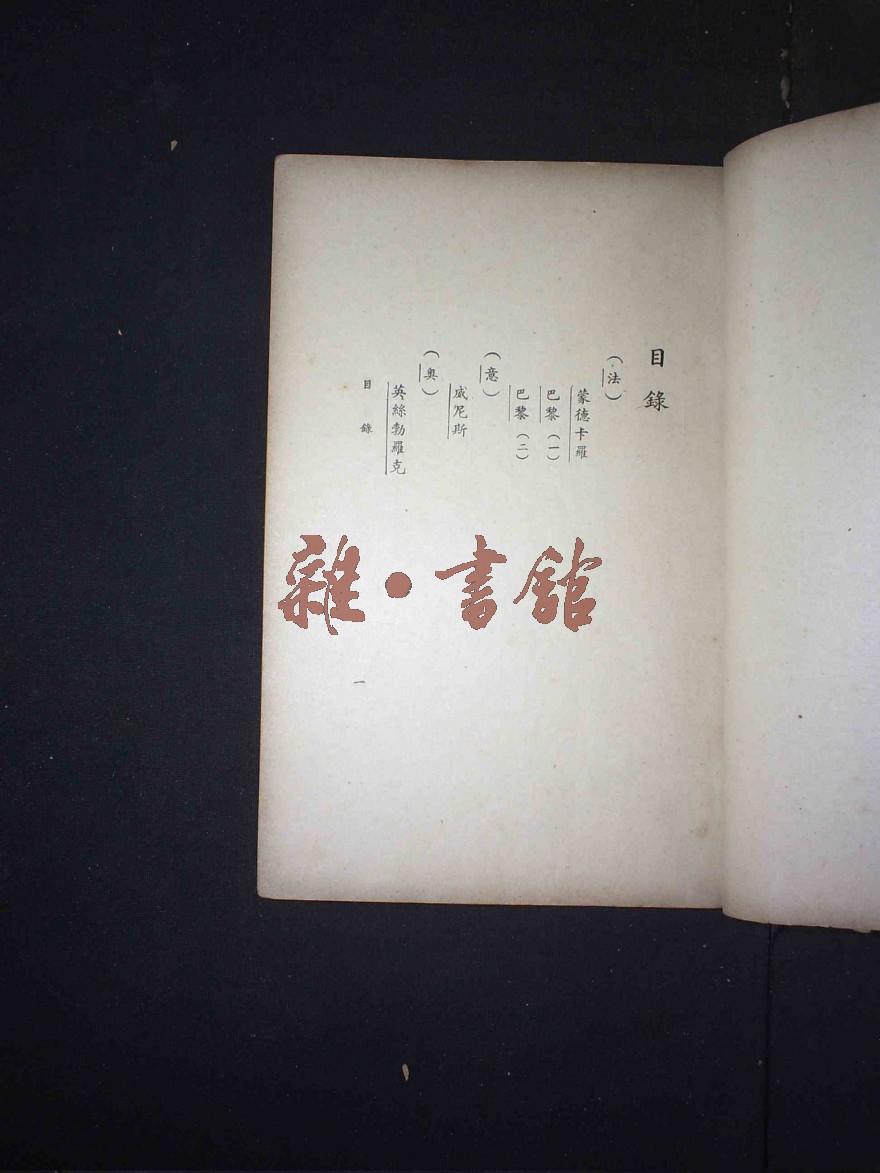 目錄
（法）
蒙德卡羅
巴黎（一）
巴黎（二）
（意）
威尼斯
（奧）
英絲勃羅克
目錄
一
雜·書館